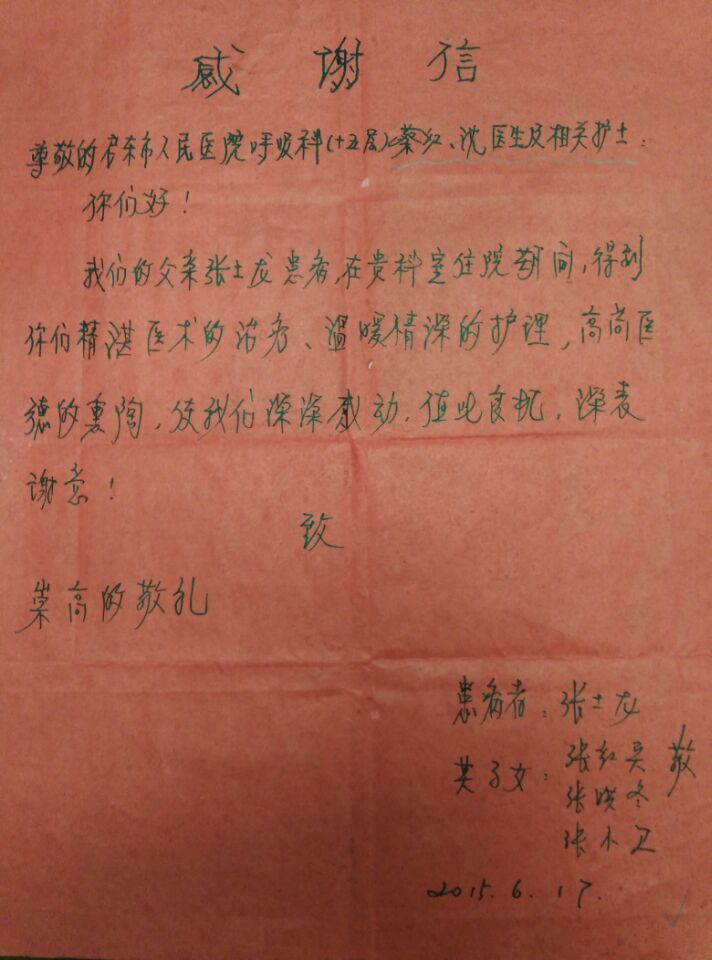 感谢信
尊敬的启东市人民医院呼吸科(十五层)蔡红、沈医生及相关护士:
你们好!
我们的父亲张士龙患病,在贵科室住院期间,得到
你们精湛医术的治疗、温暖情深的护理,高尚医
德的熏陶,使我们深深感动.值此良机,深表
谢意!
致
崇高的敬礼
患病者:张士龙
其子女:张红兵 敬
张晓冬
张小卫
2015.6.17.